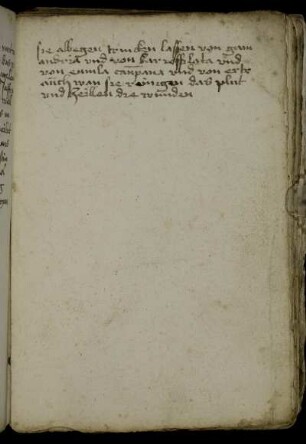 sie albegen trincken lassen von gam
andrea vnd von barroffilata vnd
von enula campana vnd von
auch wan sie reinigen das plut
vnd heilen die wunden